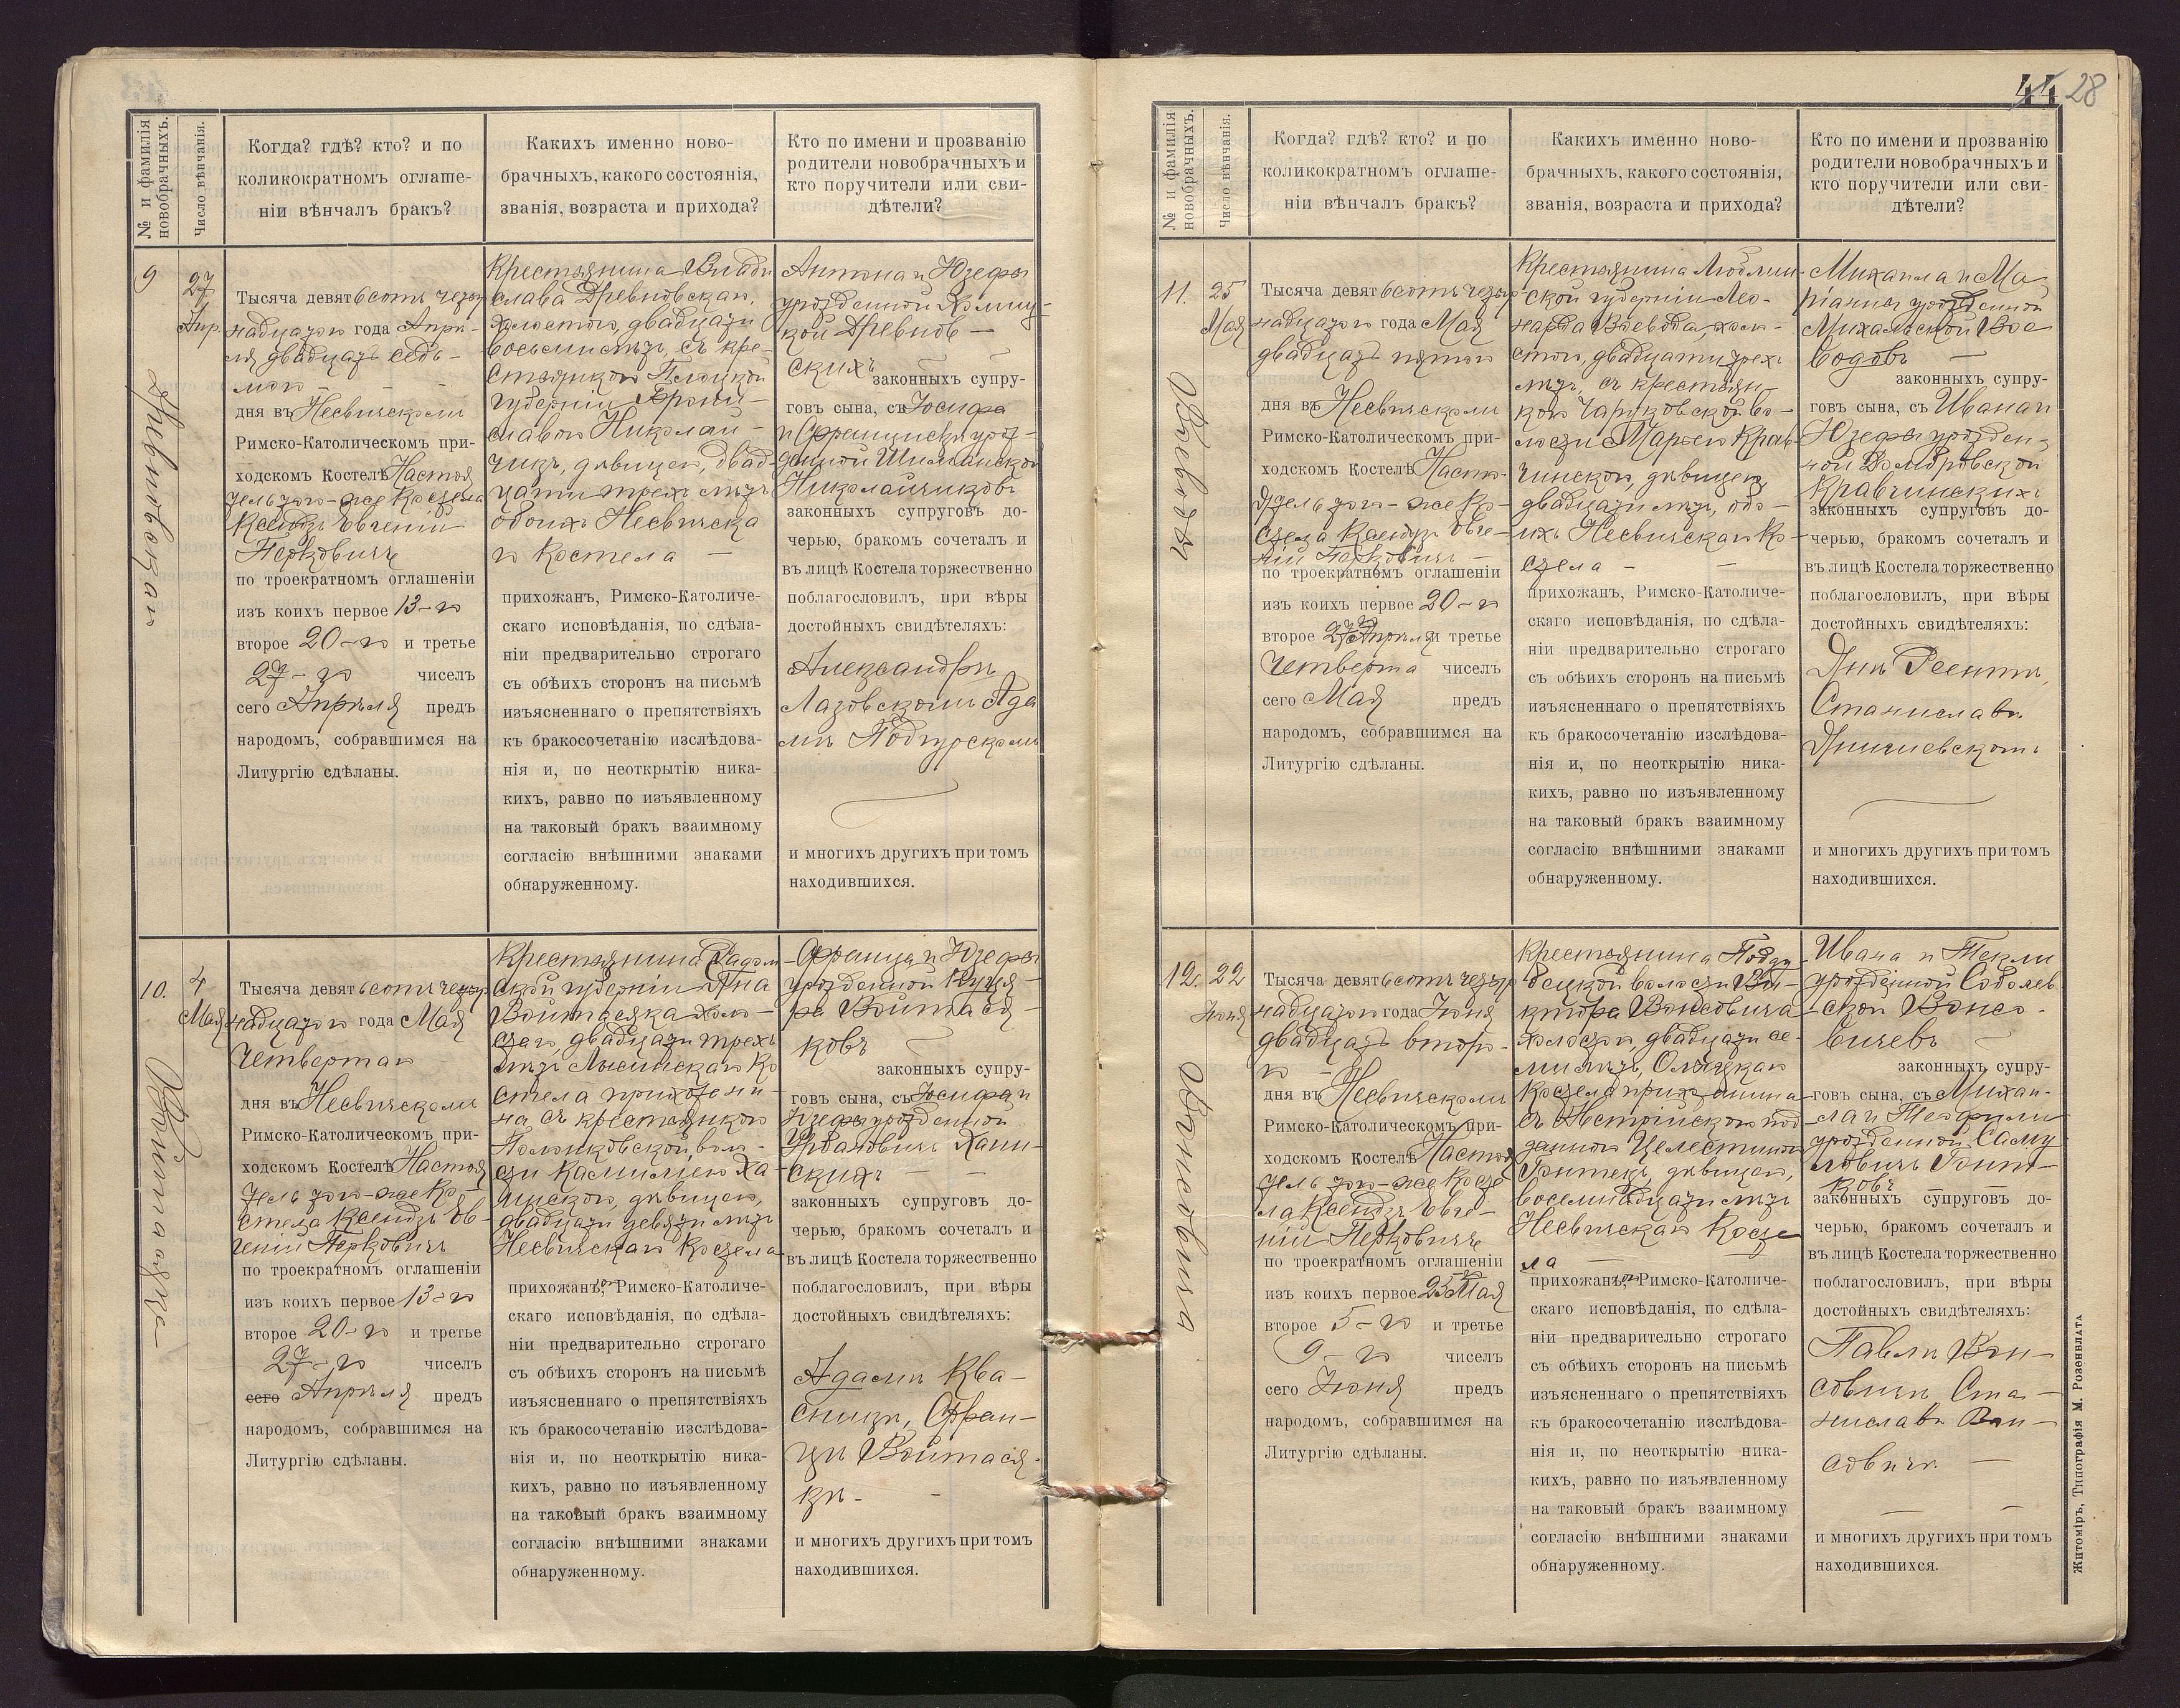 44 28
№ и фамилія новобрачныхъ.
Число вѣнчанія.
Когда? гдѣ? кто? и по
коликократномъ оглаше-
ніи вѣнчалъ бракъ?
Какихъ именно ново-
брачныхъ, какого состоянія,
званія, возраста и прихода?
Кто по имени и прозванію
родители новобрачныхъ и
кто поручители или сви-
дѣтели?
9
27
Апр.
Древновскаго
Тысяча девятьсотъ четыр
надцатого года Апрѣ-
ля двадцать седь-
мого
дня въ Несвичскомъ
Римско-Католическомъ при-
ходскомъ Костелѣ Настоя
тель того-же Костела
Ксендзъ Евгеній
Перковичъ
по троекратномъ оглашеніи
изъ коихъ первое 13-го
второе 20-го и третье
27-го чиселъ
сего Апрѣля предъ
народомъ, собравшимся на
Литургію сдѣланы.
Крестьянина Влади
слава Древновскаго,
холостого, двадцати
восьми лѣтъ, съ кре-
стьянкою Плоцкой
губерніи Брони-
славою Николай-
чикъ, дѣвицею, двад-
цати трехъ лѣтъ
обоихъ Несвичска
го Костела —
прихожанъ, Римско-Католиче-
скаго исповѣданія, по сдѣла-
ніи предварительно строгаго
съ обѣихъ сторонъ на письмѣ
изъясненнаго о препятствіяхъ
къ бракосочетанію изслѣдова-
нія и, по неоткрытію ника-
кихъ, равно по изъявленному
на таковый бракъ взаимному
согласію внѣшними знаками
обнаруженному.
Антона и Юзефы
урожденной
кой Древнов —
скихъ
законныхъ супру-
говъ сына, съ Іосифа
и Франциски урож-
денной Шиманской
Николайчиковъ
законныхъ супруговъ до-
черью, бракомъ сочеталъ и
въ лицѣ Костела торжественно
поблагословилъ, при вѣры
достойныхъ свидѣтеляхъ:
Александръ
Лазовскомъ Ада
мъ Подгурскомъ
и многихъ другихъ при томъ
находившихся.
10.
4
Мая
Войтасяка
Тысяча девятьсотъ четыр
надцатого года Мая
четвертаго
дня въ Несвичскомъ
Римско-Католическомъ при-
ходскомъ Костелѣ Настоя
тель того-же Ко-
стела Ксендзъ Ев-
геній Перковичъ
по троекратномъ оглашеніи
изъ коихъ первое 13-го
второе 20-го и третье
27-го чиселъ
сего Апрѣля предъ
народомъ, собравшимся на
Литургію сдѣланы.
Крестьянина Радом
ской губерніи
Войтасяка холо-
стаго, двадцати трехъ
лѣтъ Ко
стела прихожани-
на съ крестьянкою
Полонковской воло-
сти Камиллею Ха-
линскою, дѣвицею,
двадцати девяти лѣтъ
Несвичскаго Костела
прихожанъ, Римско-Католиче-
скаго исповѣданія, по сдѣла-
ніи предварительно строгаго
съ обѣихъ сторонъ на письмѣ
изъясненнаго о препятствіяхъ
къ бракосочетанію изслѣдова-
нія и, по неоткрытію ника-
кихъ, равно по изъявленному
на таковый бракъ взаимному
согласію внѣшними знаками
обнаруженному.
Франца и Юзефы
урожденной
Войтася-
ковъ
законныхъ супру-
говъ сына, съ Іосифа и
Юзефы урожденной
Урбановичъ Халин-
скихъ
законныхъ супруговъ до-
черью, бракомъ сочеталъ и
въ лицѣ Костела торжественно
поблагословилъ, при вѣры
достойныхъ свидѣтеляхъ:
Адамъ Ква-
сницъ, Фран-
цъ Войтася-
къ -
и многихъ другихъ при томъ
находившихся.
№ и фамилія новобрачныхъ.
Число вѣнчанія.
Когда? гдѣ? кто? и по
коликократномъ оглаше-
ніи вѣнчалъ бракъ?
Какихъ именно ново-
брачныхъ, какого состоянія,
званія, возраста и прихода?
Кто по имени и прозванію
родители новобрачныхъ и
кто поручители или сви-
дѣтели?
11.
25
Мая
Воевода
Тысяча девятьсотъ четыр
надцатого года Мая
двадцать пятого
дня въ Несвичскомъ
Римско-Католическомъ при-
ходскомъ Костелѣ Насто-
ятель того-же Ко-
стела Ксендзъ Евге-
ній Перковичъ
по троекратномъ оглашеніи
изъ коихъ первое 20-го
второе 27го Апрѣля и третье
Четверта чиселъ
сего Мая предъ
народомъ, собравшимся на
Литургію сдѣланы.
Крестьянина Люблин-
ской губерніи Лео-
нарда Воевода, холо-
стого, двадцати трехъ
лѣтъ, съ крестьян-
кою Чаруковской во-
лости Марьею Крав-
чинскою, дѣвицею
двадцати лѣтъ, обо-
ихъ Несвичскаго Ко-
стела -
прихожанъ, Римско-Католиче-
скаго исповѣданія, по сдѣла-
ніи предварительно строгаго
съ обѣихъ сторонъ на письмѣ
изъясненнаго о препятствіяхъ
къ бракосочетанію изслѣдова-
нія и, по неоткрытію ника-
кихъ, равно по изъявленному
на таковый бракъ взаимному
согласію внѣшними знаками
обнаруженному.
Михаила и Ма
ріанны урожденной
Михальской Вое
водовъ —
законныхъ супру-
говъ сына, съ Ивана и
Юзефы урожден-
ной Домбровской
Кравчинскихъ
законныхъ супруговъ до-
черью, бракомъ сочеталъ и
въ лицѣ Костела торжественно
поблагословилъ, при вѣры
достойныхъ свидѣтеляхъ:
Станиславъ
и многихъ другихъ при томъ
находившихся.
12.
22
Іюня
Вонсовича
Тысяча девятьсотъ четыр
надцатого года Іюня
двадцать второ-
го -
дня въ Несвичскомъ
Римско-Католическомъ при-
ходскомъ Костелѣ Настоя
тель того-же Косте
ла Ксендзъ Евге-
ній Перковичъ
по троекратномъ оглашеніи
изъ коихъ первое 25го Мая
второе 5-го и третье
9-го чиселъ
сего Іюня предъ
народомъ, собравшимся на
Литургію сдѣланы.
Крестьянина Подду
бецкой волости Ви-
ктора Вонсовича
холостого, двадцати се-
ми лѣтъ, Олыцкаго
Костела прихожанина
съ Австрійскою под
данною Целестиною
Гонтекъ, дѣвицею,
восемнадцати лѣтъ
Несвичскаго Косте
ла
прихожанъ, Римско-Католиче-
скаго исповѣданія, по сдѣла-
ніи предварительно строгаго
съ обѣихъ сторонъ на письмѣ
изъясненнаго о препятствіяхъ
къ бракосочетанію изслѣдова-
нія и, по неоткрытію ника-
кихъ, равно по изъявленному
на таковый бракъ взаимному
согласію внѣшними знаками
обнаруженному.
Ивана и Теклі
урожденной Соболев
ской Вонсо-
вичевъ
законныхъ супру-
говъ сына, съ Михаи-
ла и Теофили
урожденной Саму
ловичъ Гонт-
ковъ
законныхъ супруговъ до-
черью, бракомъ сочеталъ и
въ лицѣ Костела торжественно
поблагословилъ, при вѣры
достойныхъ свидѣтеляхъ:
Павлъ Вон-
совичъ, Ста-
ниславъ Вон-
совичъ —
и многихъ другихъ при томъ
находившихся.
Житоміръ, Типографія М. Розенблата